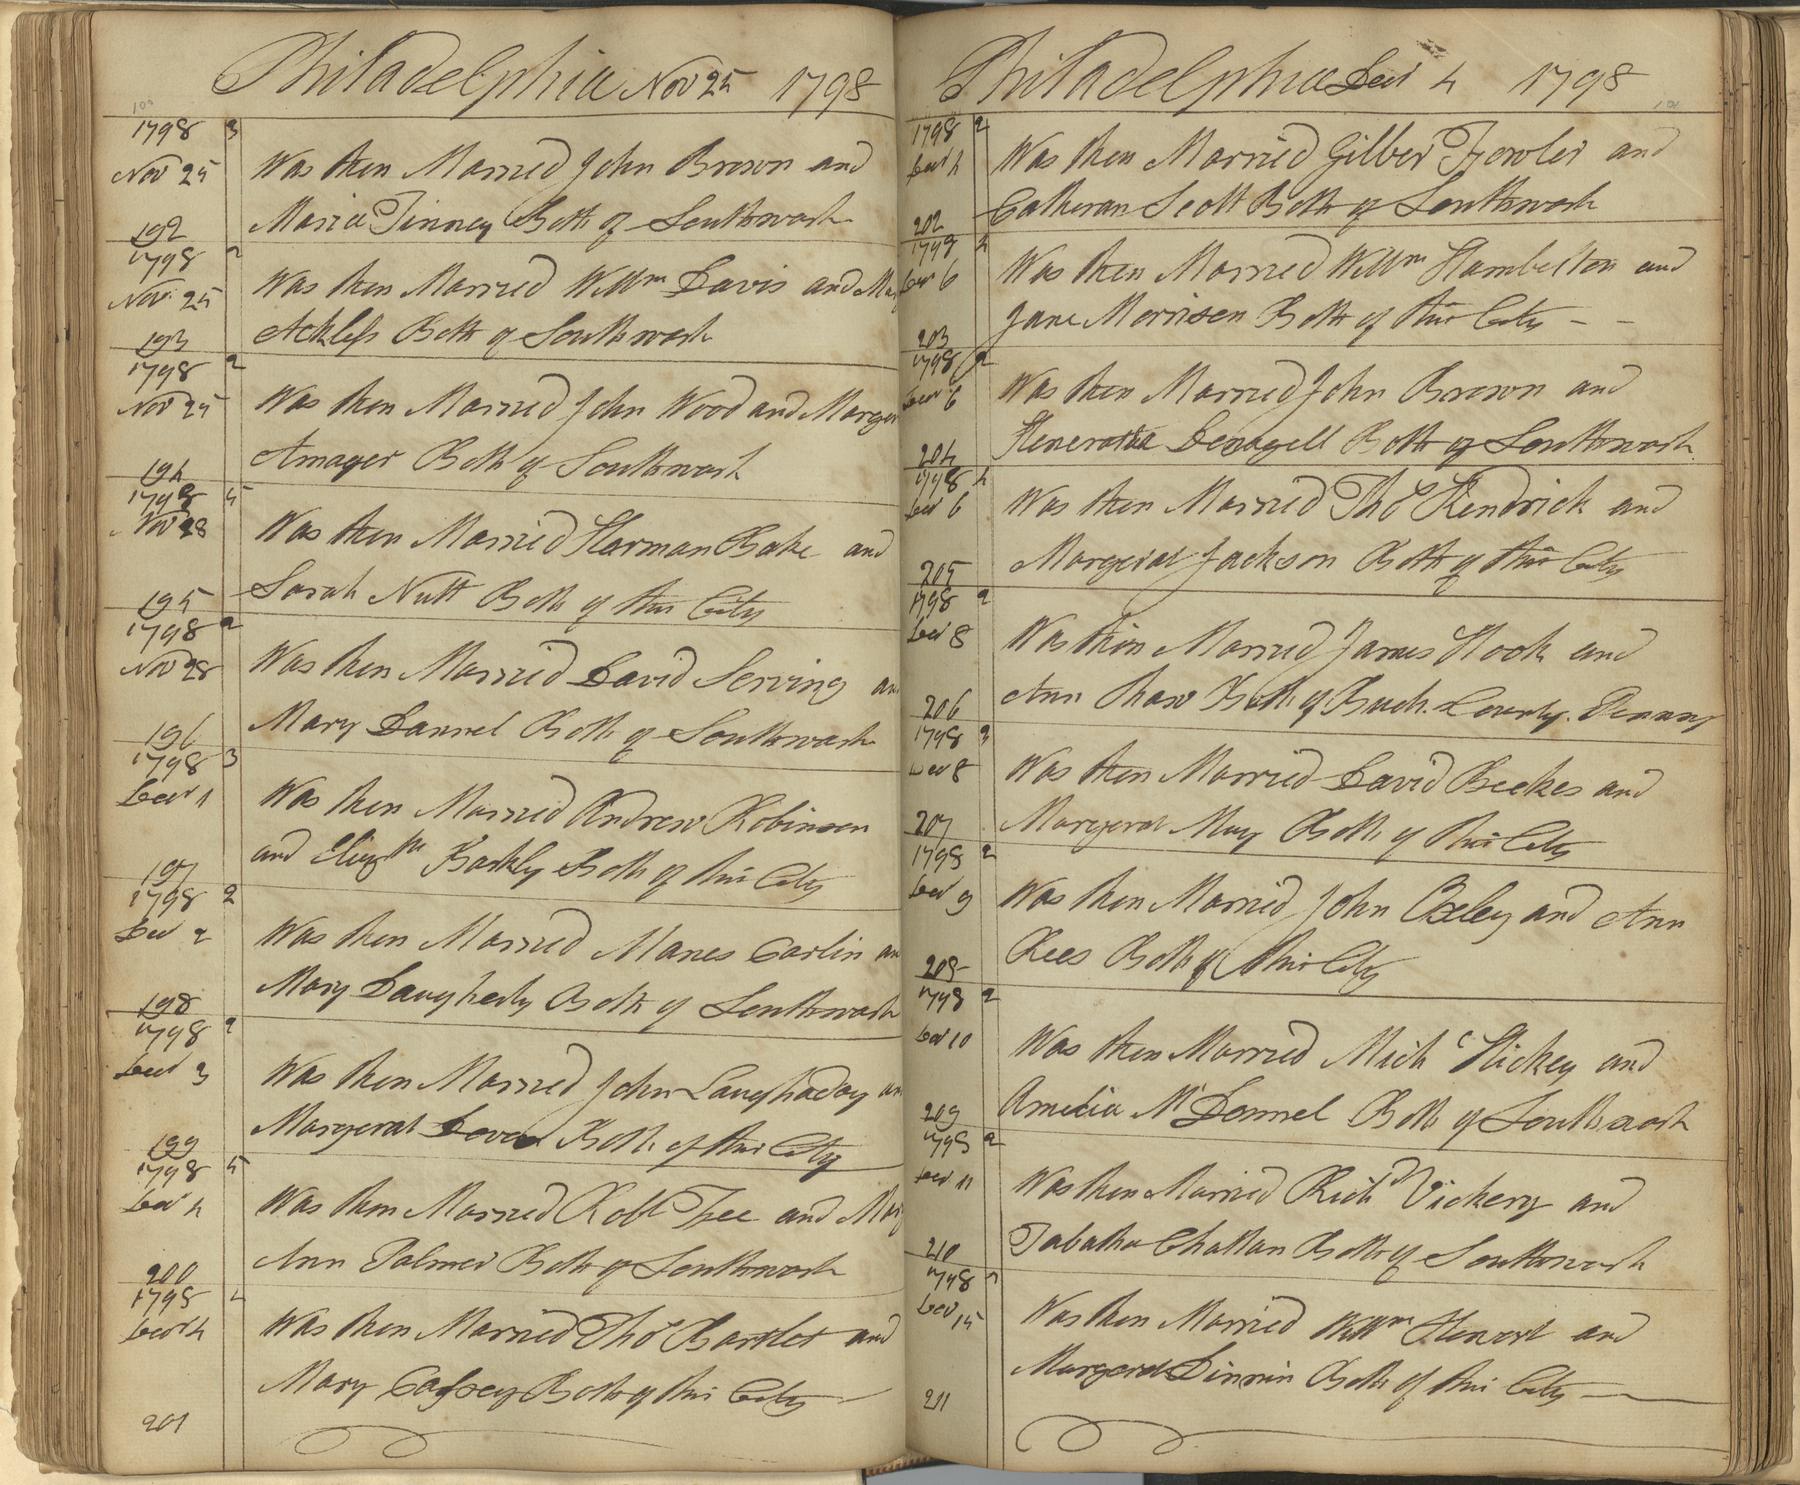 Philadelphia Nov 25 1798
1798 3
Nov 25 Was then Married John Brown and
192 Maria Tinney Both of Southwark
1798 2
Nov 25 Was then Married Willm Davis and
193 Both of Southwark
1798 2
Nov 25 Was then Married John Wood and
194 Amager Both of Southwark
1798 5
Nov 28 Was then Married Harman Bake and
195 Sarah Nutt Both of this City
1798 2
Nov 28 Was then Married David Serving
196 Mary Dannel Both of Southwark
1798 3
Decr 1 Was then Married Andrew Robinson
197 and Elizth Barkly Both of this City
1798 2
Decr 2 Was then Married Manes Carlin
198 Mary Daugherty Both of Southwark
1798 2
Decr 3 Was then Married John Laughaday
199 Margerat Both of this City
1798 5
Decr 4 Was then Married Robt Tree and
200 Ann Palmer Both of Southwark
1798 4
Decr 4 Was then Married Thos Bartlet and
Mary Both of this City
201
Philadelphia Decr 4 1798
1798 2
Decr 4 Was then Married Gilber Fowler and
202 Catheran Scott Both of Southwark
1798 4
Decr 6 Was then Married Willm Hambelton and
203 Jane Morrison Both of this City - -
1798 2
Decr 6 Was then Married John Brown and
204 Both of Southwark
1798 4
Decr 6 Was then Married Thos Kendrick and
205 Margerat Jackson Both of this City
1798 2
Decr 8 Was then Married James Hook and
206 Ann Shaw Both of Buck County.
1798 3
Decr 8 Was then Married David Beekes and
207 Margerat May Both of this City
1798 2
Decr 9 Was then Married John Oxley and Ann
208 Rees Both of this City
1798 2
Decr 10 Was then Married Michl Hickey and
209 Amelia McDonnel Both of Southwark
1798 2
Decr 11 Was then Married Richd Vickery and
210 Tabatha Chattan Both of Southwark
1798
Decr 15 Was then Married Willm and
Margerat Dinnin Both of this City
211